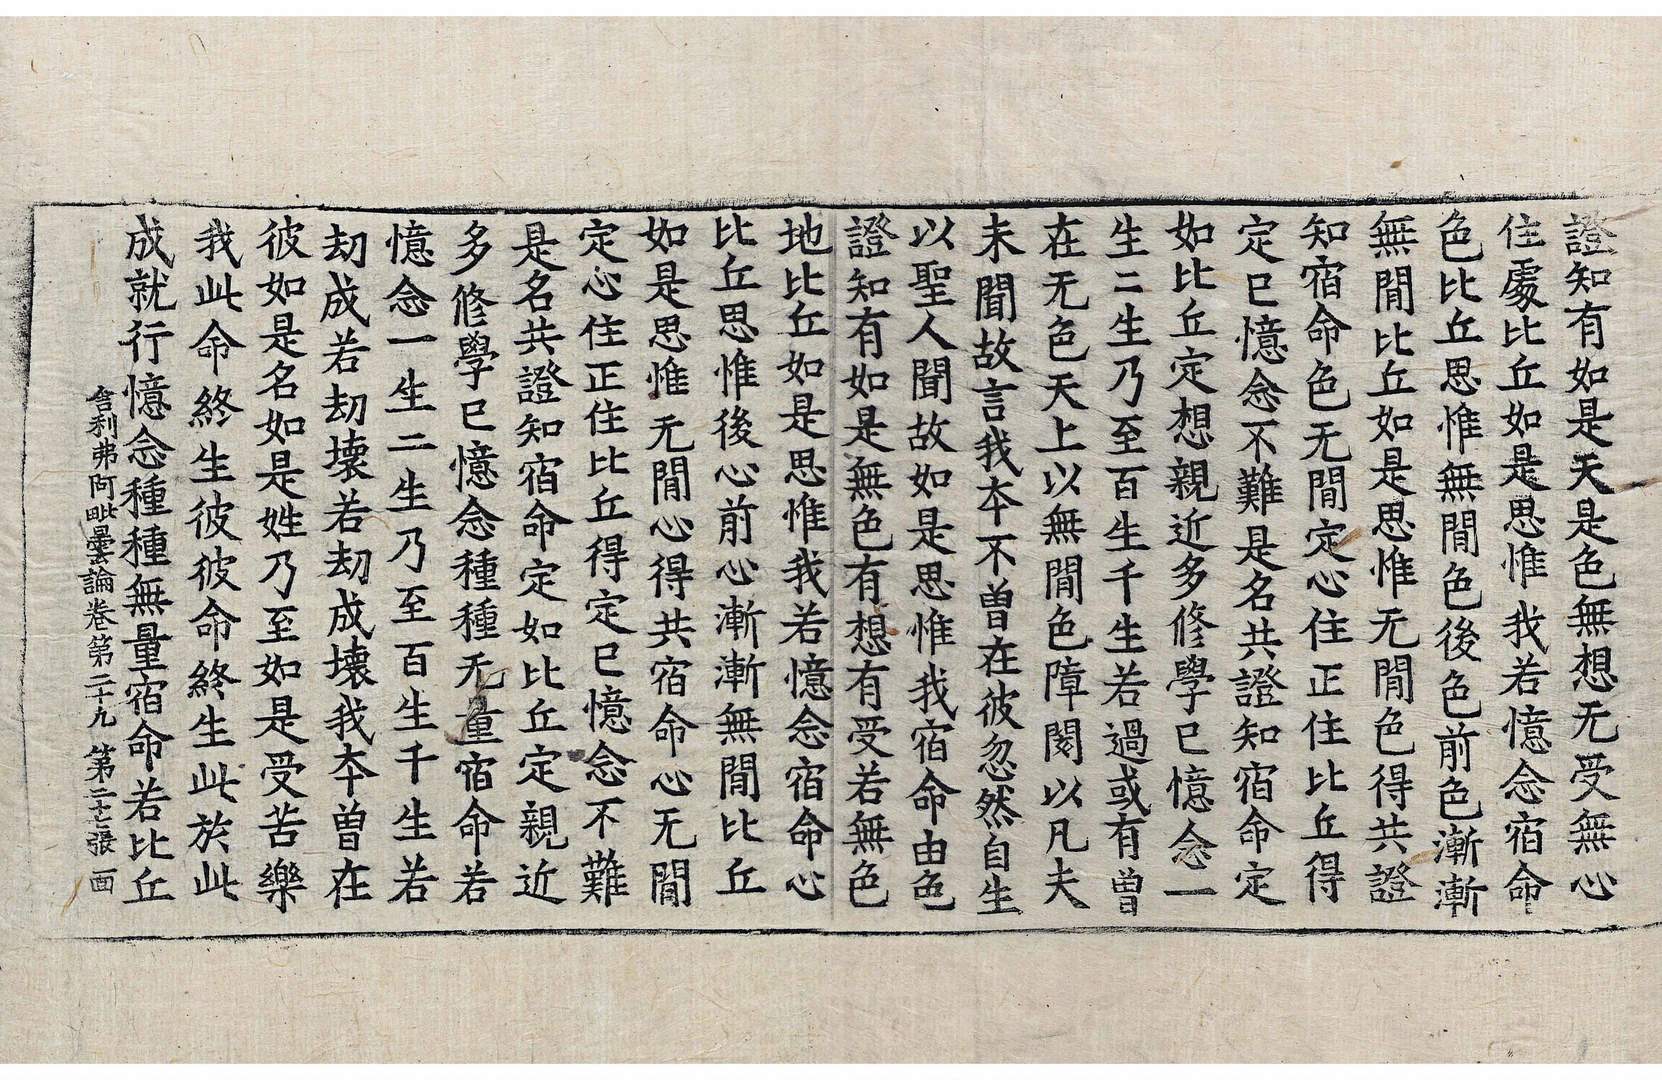 證知有如是天是色無想无受無心
住處比丘如是思惟我若憶念宿命
色比丘思惟無間色後色前色漸漸
無間比丘如是思惟无間色得共證
知宿命色无間定心住正住比丘得
定已憶念不難是名共證知宿命定
如比丘定想親近多修學已憶念一
生二生乃至百生千生若過或有曾
在无色天上以無間色障閡以凡夫
未聞故言我本不曾在彼忽然自生
以聖人聞故如是思惟我宿命由色
證知有如是無色有想有受若無色
地比丘如是思惟我若憶念宿命心
比丘思惟後心前心漸漸無間比丘
如是思惟无間心得共宿命心无間
定心住正住比丘得定已憶念不難
是名共證知宿命定如比丘定親近
多修學已憶念種種无量宿命若
憶念一生二生乃至百生千生若
劫成若劫壞若劫成壞我本曾在
彼如是名如是姓乃至如是受苦樂
我此命終生彼彼命終生此於此
成就行憶念種種無量宿命若比丘
舍利弗阿毗曇論卷第二十九 第二十七張 画